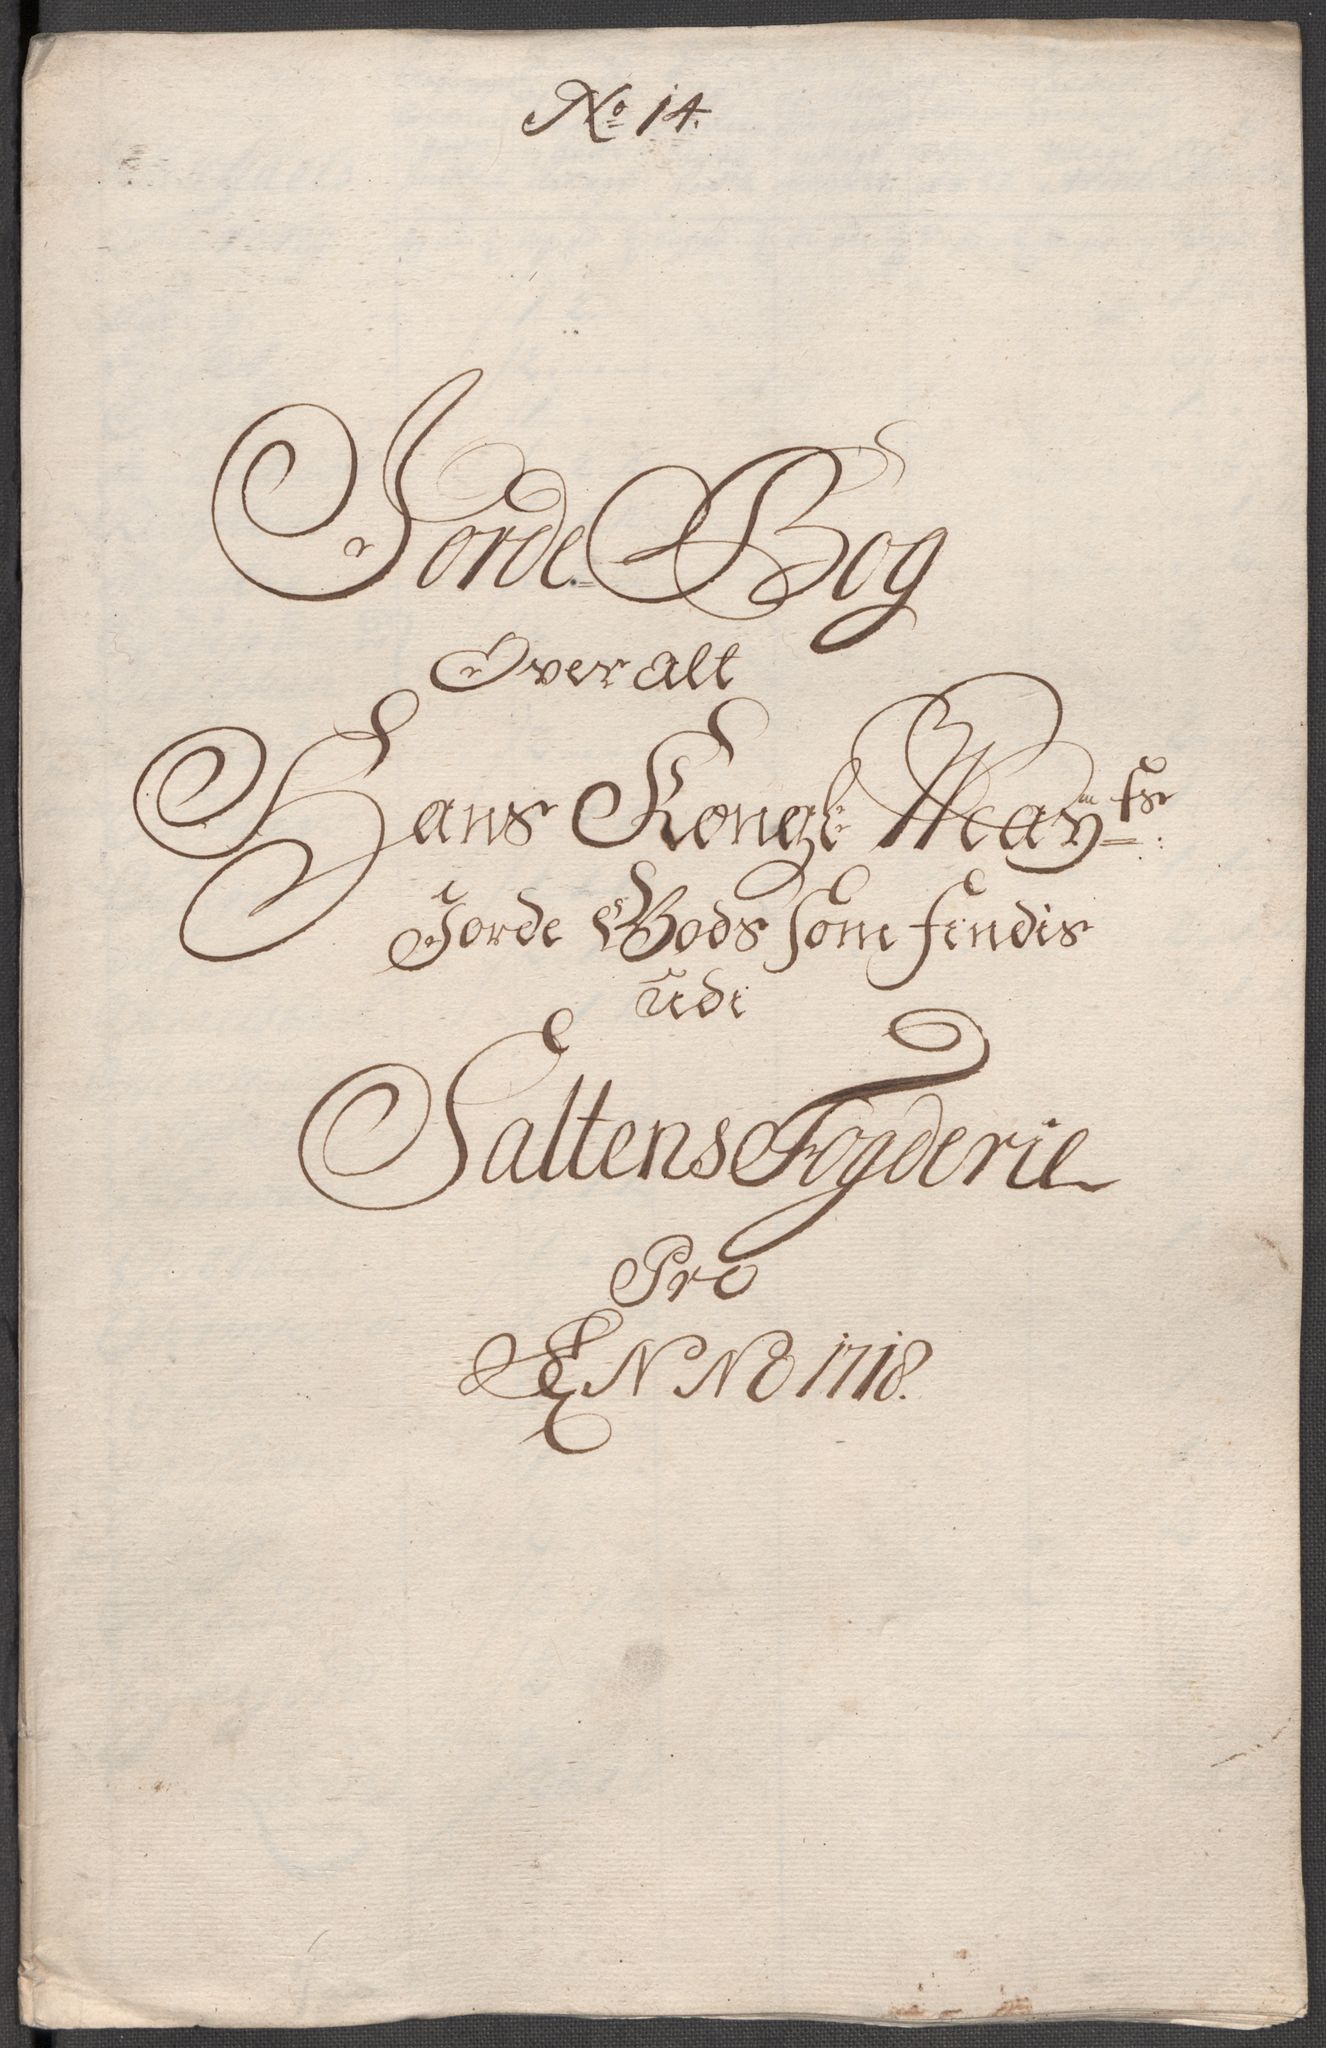 No 14.
Jorde Bog
Over alt
Hans Kongl Mayts
Jorde Gods som findis
udi
Saltens Fogderie
Pro
ANNO 1718.